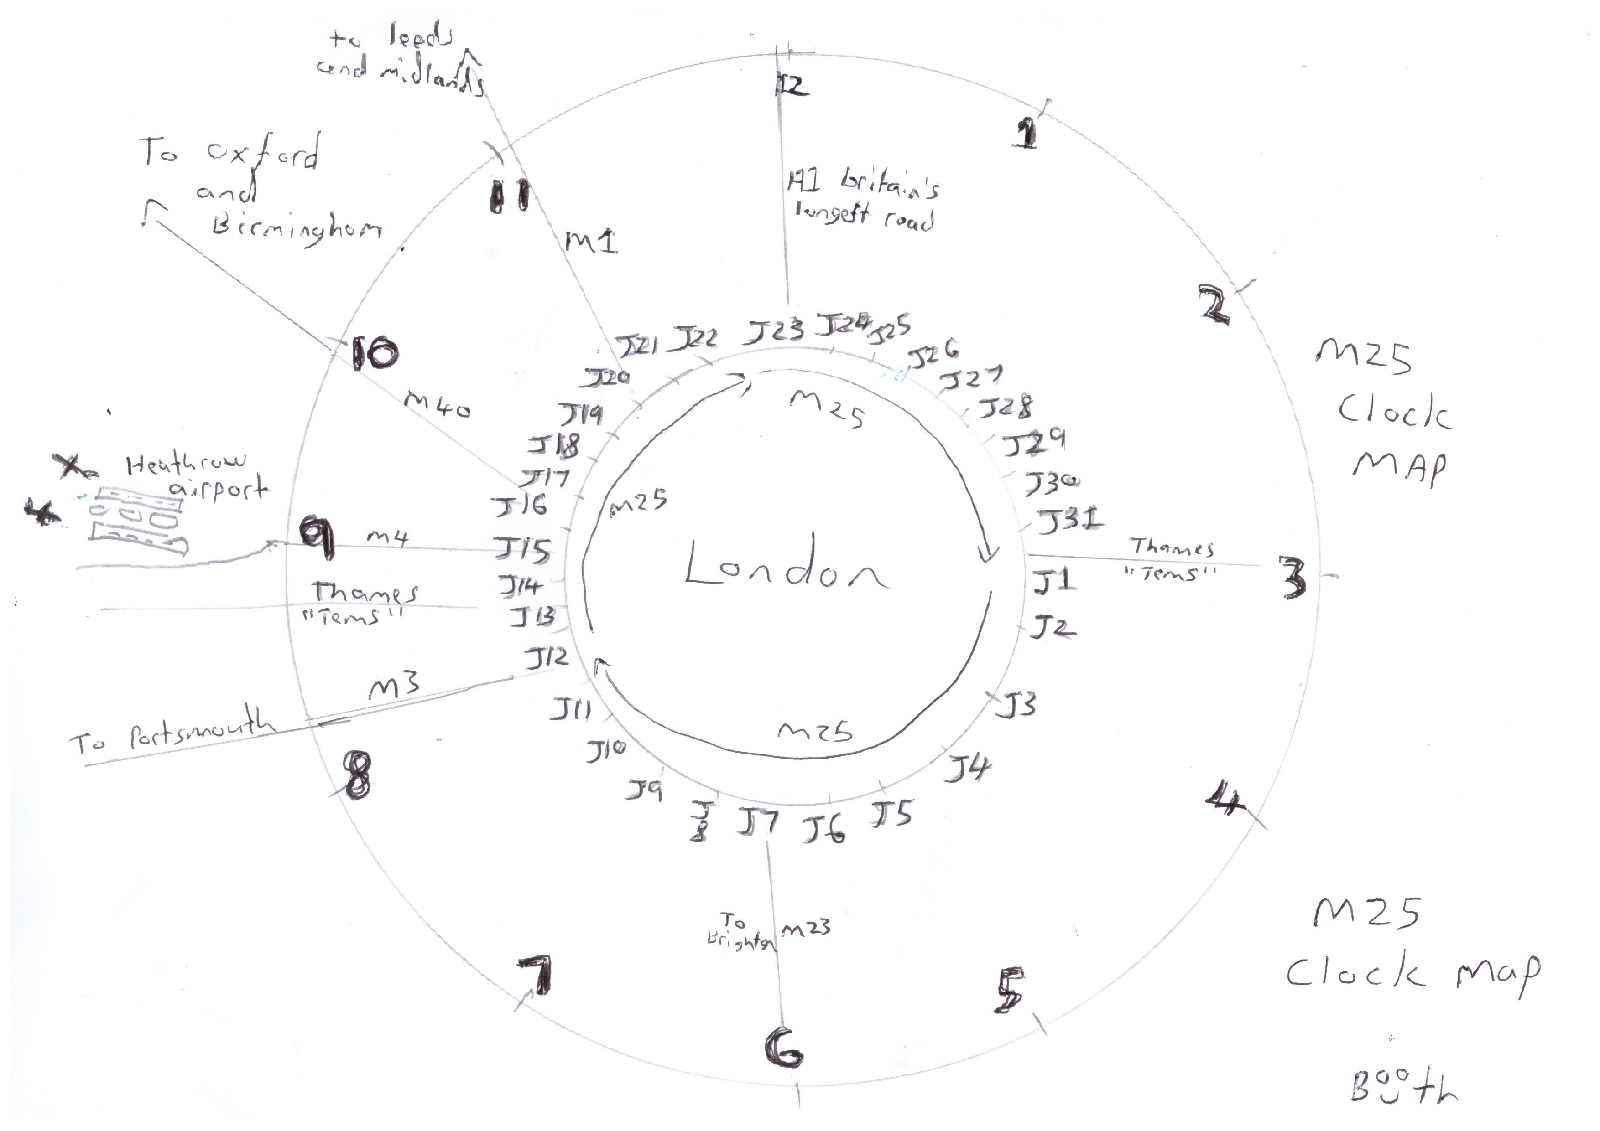 to leeds
and midlands
To oxford
and
Birmingham
12
1
2
3
4
5
6
7
8
9
10
11
A1 britain's
longest road
M1
M40
Heathrow
airport
M4
Thames
"Tems"
M3
To Portsmouth
To
Brighton
M23
Thames
"Tems"
J1
J2
J3
J4
J5
J6
J7
J8
J9
J10
J11
J12
J13
J14
J15
J16
J17
J18
J19
J20
J21
J22
J23
J24
J25
J26
J27
J28
J29
J30
J31
M25
M25
M25
London
M25
Clock
MAP
M25
Clock map
Booth